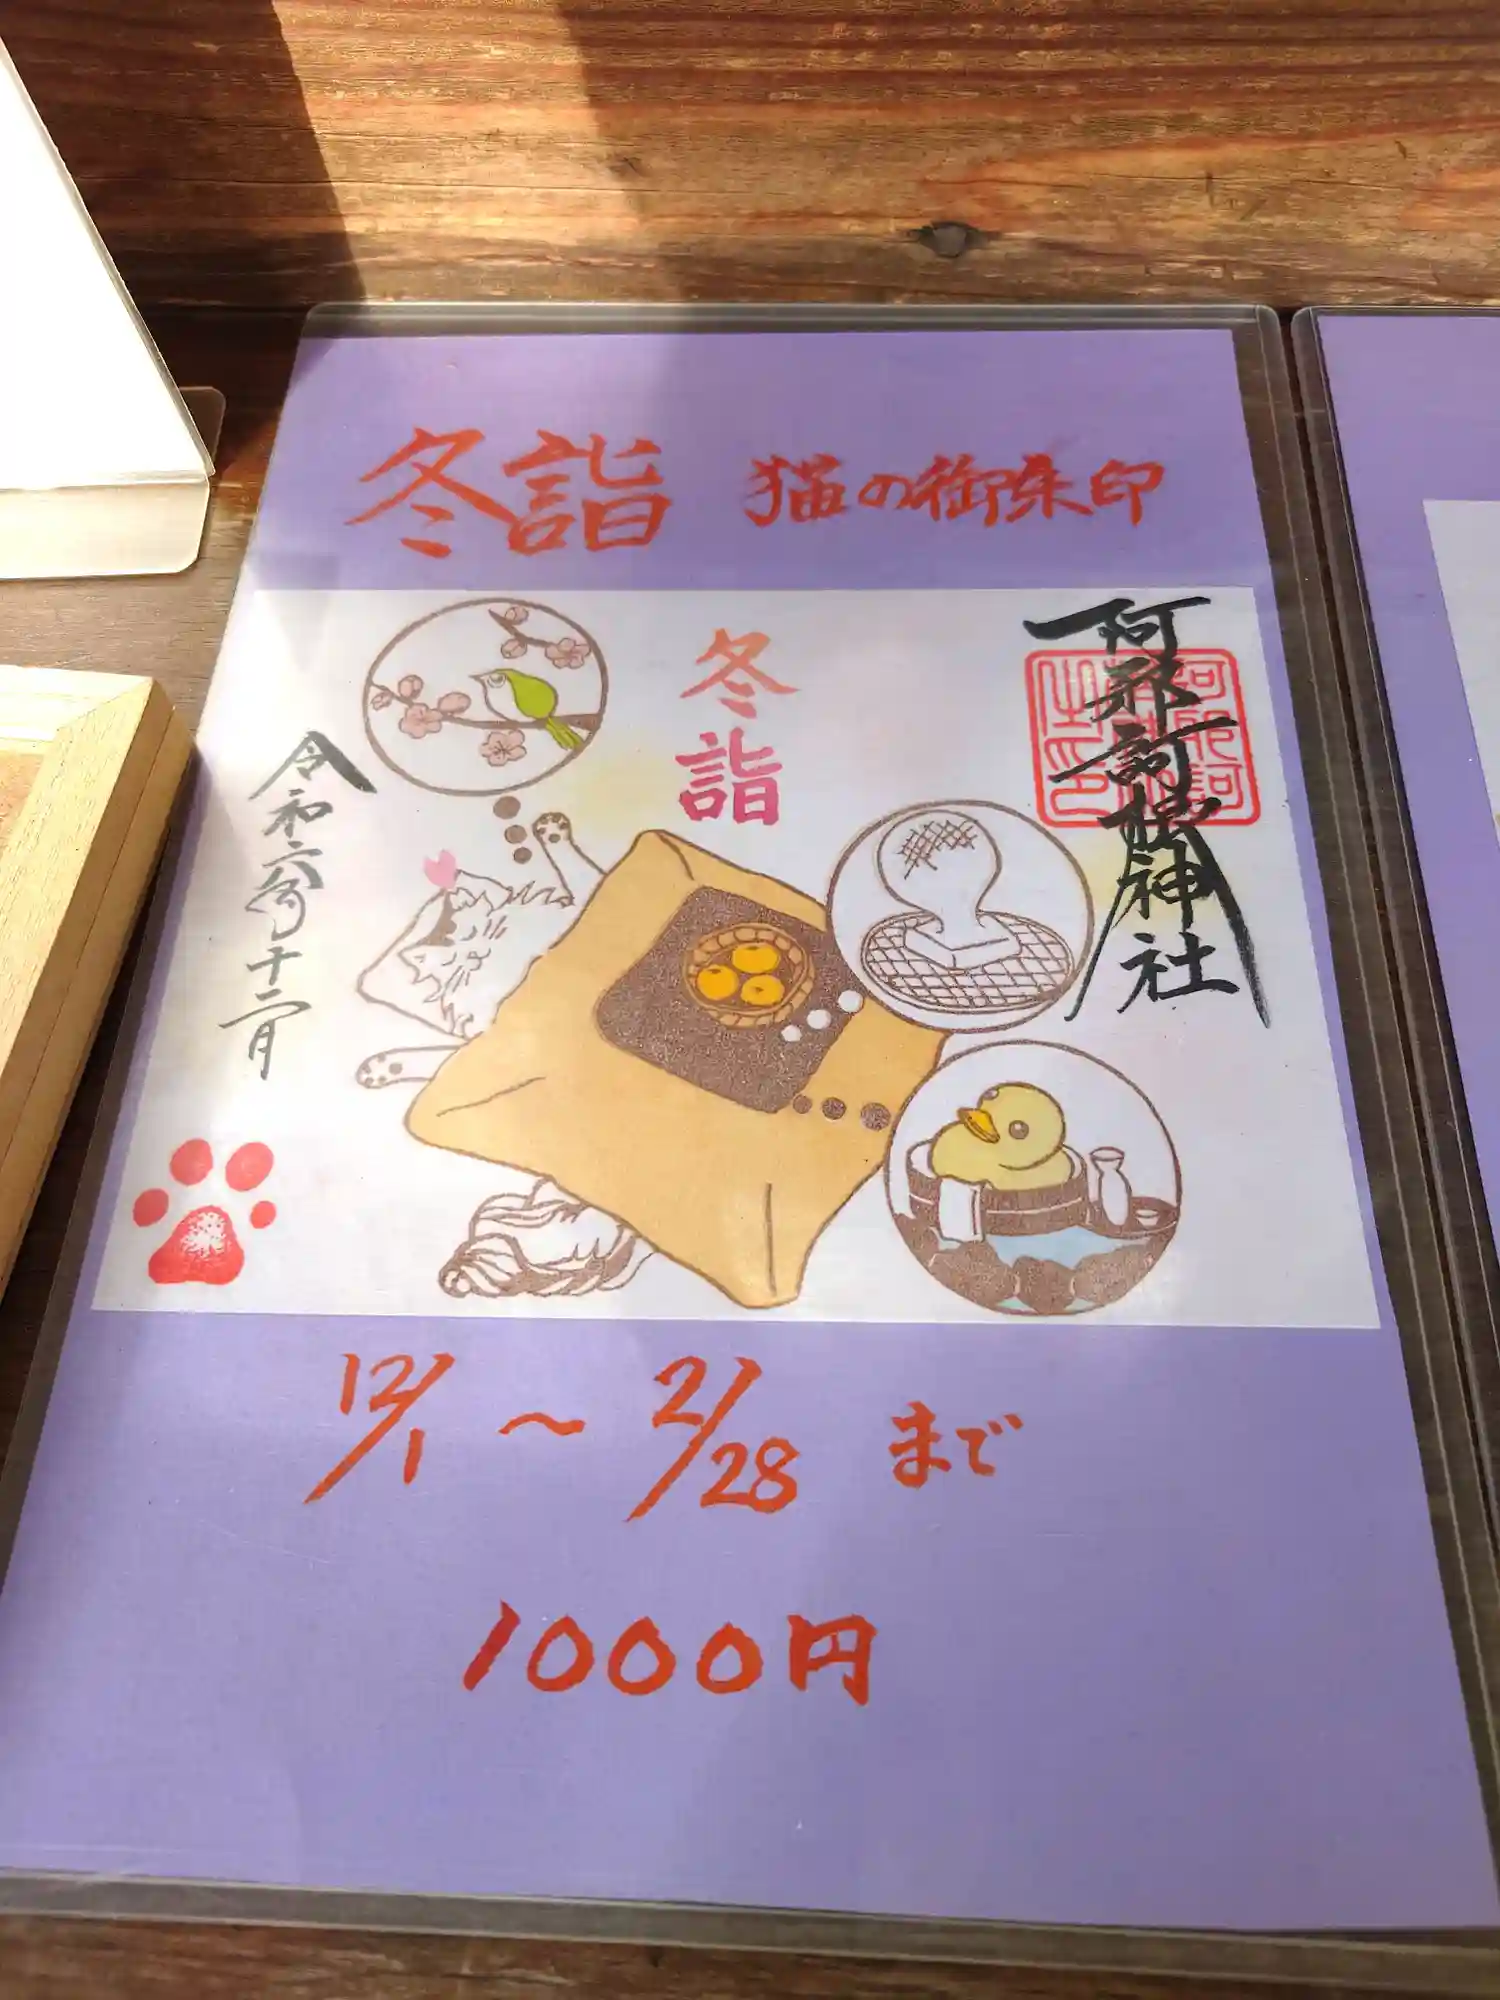 冬詣 猫の御朱印
冬詣
阿那訶根神社
令和六年十二月
12/1〜2/28まで
1000円